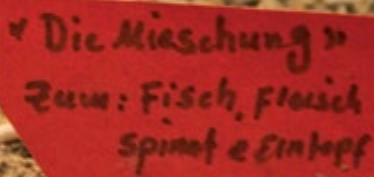 "Die Mieschung"
Zum: Fisch, Fleisch
Spinat e Eintopf